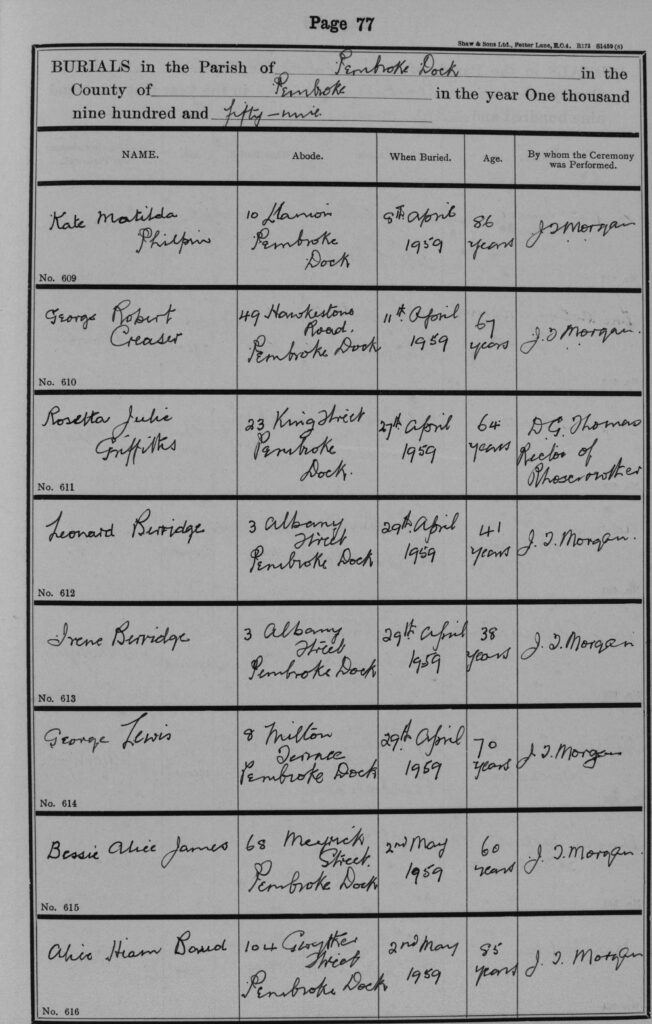 Page 77
Shaw & Sons Ltd., Fetter Lane, E.C.4. B173 S1459 (S)
BURIALS in the Parish of Pembroke Dock in the
County of Pembroke in the year One thousand
nine hundred and fifty-nine.
NAME. Abode. When Buried. Age. By whom the Ceremony was Performed.
Kate Matilda
Philpin
No. 609
10 Llanion
Pembroke
Dock
8th April
1959
86
years
J. T. Morgan
George Robert
Creaser
No. 610
49 Hawkestone
Road.
Pembroke Dock
11th April
1959
67
years
J. T. Morgan.
Rosetta Julie
Griffiths
No. 611
23 King Street
Pembroke
Dock.
27th April
1959
64
years
D. G. Thomas
Rector of
Rhoscrowther
Leonard Berridge
No. 612
3 Albany
Street
Pembroke Dock
29th April
1959
41
years
J. T. Morgan.
Irene Berridge
No. 613
3 Albany
Street
Pembroke Dock
29th April
1959
38
years
J. T. Morgan
George Lewis
No. 614
8 Milton
Terrace
Pembroke Dock
29th April
1959
70
years
J. T. Morgan
Bessie Alice James
No. 615
68 Meyrick
Street.
Pembroke Dock
2nd May
1959
60
years
J. T. Morgan.
Alice Hiam
No. 616
104 Gwyther
Street
Pembroke Dock
2nd May
1959
85
years
J. T. Morgan